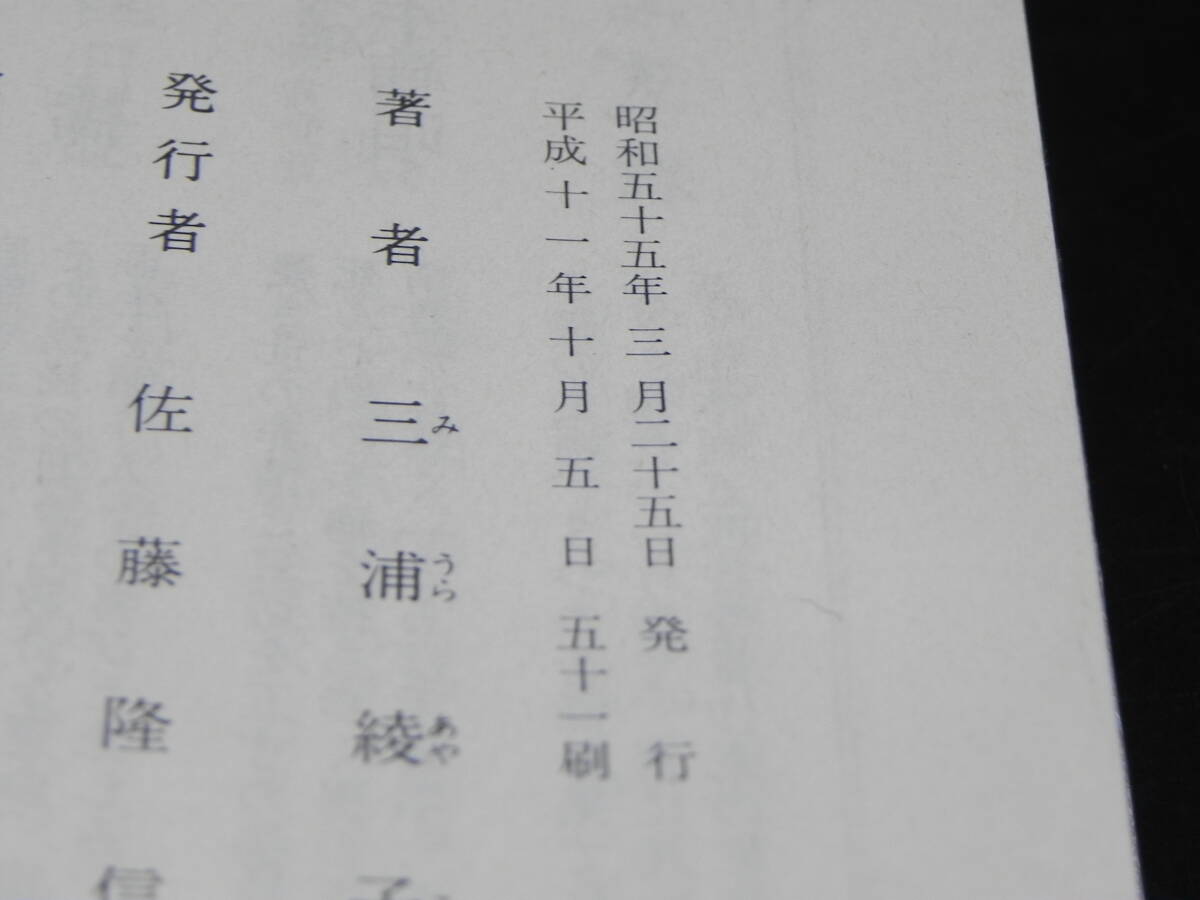 昭和五十五年三月二十五日発行
平成十一年十月五日五十一刷
著者 三浦綾子
み うら あや
発行者 佐藤隆信